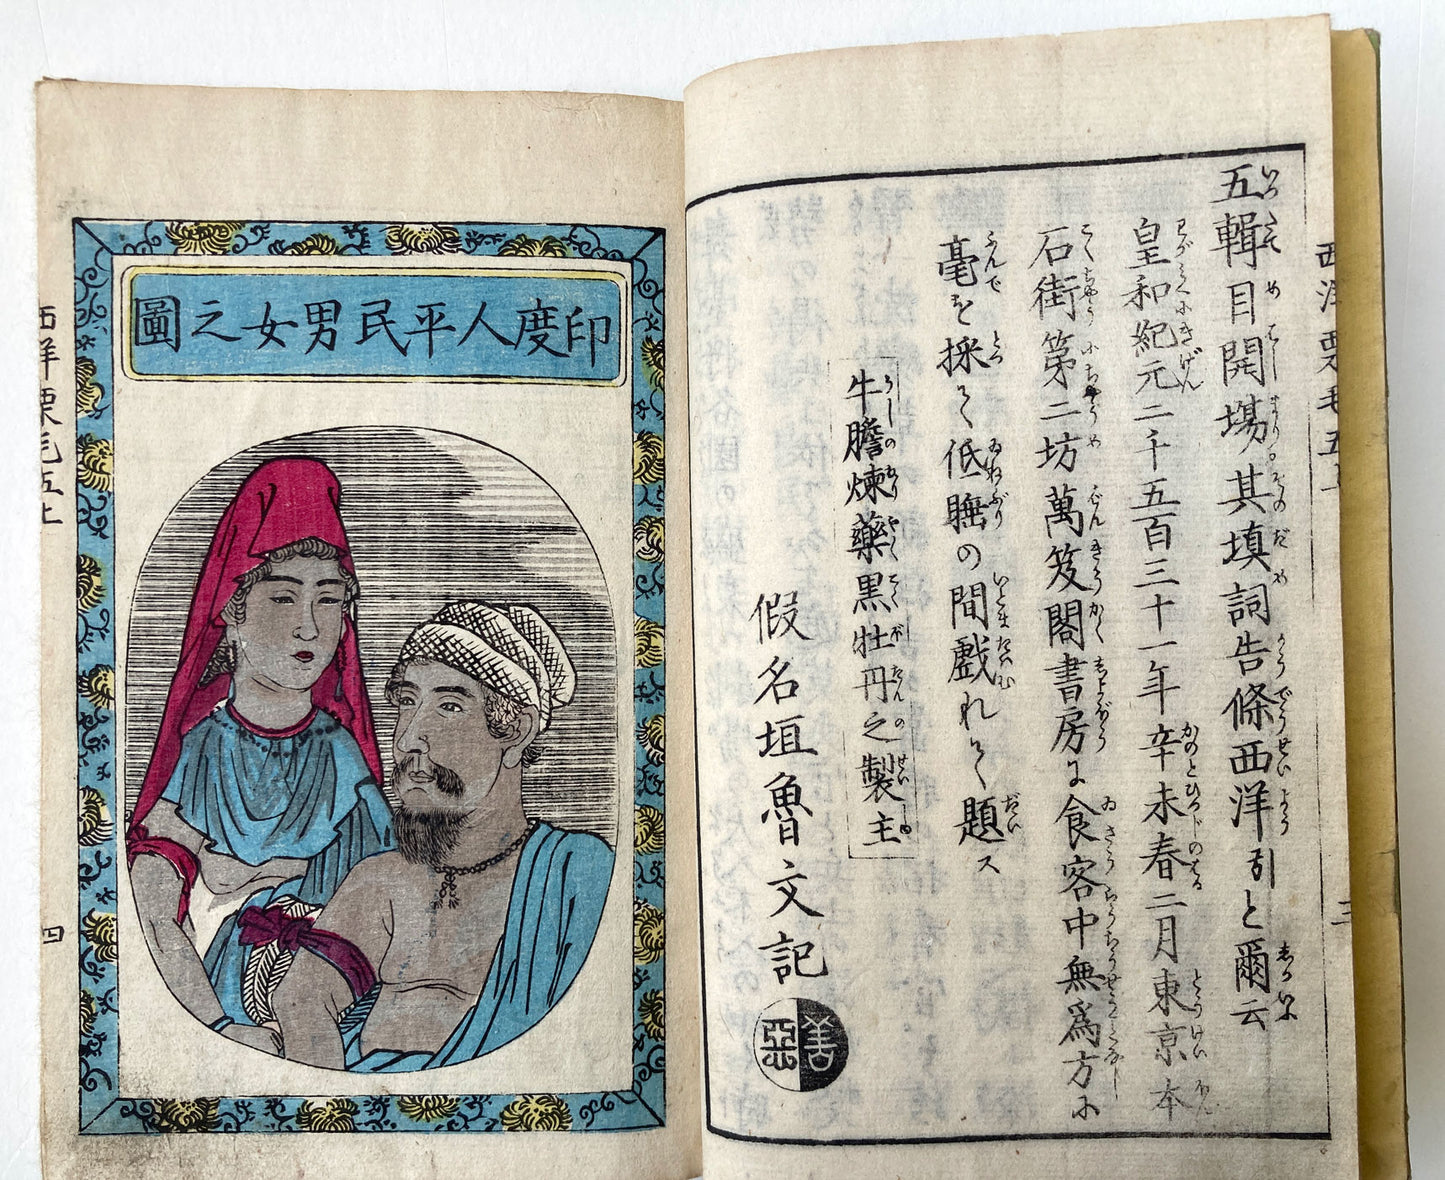 西洋栗毛五上
三
五輯目開場其填詞告條西洋引と爾云
皇和紀元二千五百三十一年辛未春二月東京本
石街第二坊萬笈閣書房に食客中無爲方に
毫を採て低睡の間戯れて題ス
牛膽煉藥黒牡丹之製主
假名垣魯文記
善惡
印度人平民男女之圖
西洋栗毛五上
四